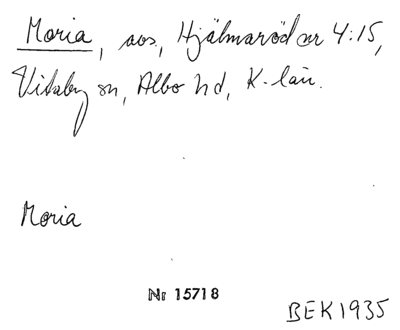 Moria, aos, Hjälmaröd nr 4:15,
Vitaby sn, Albo hd, K-län.
Moria
Nr 15718
BEK1935